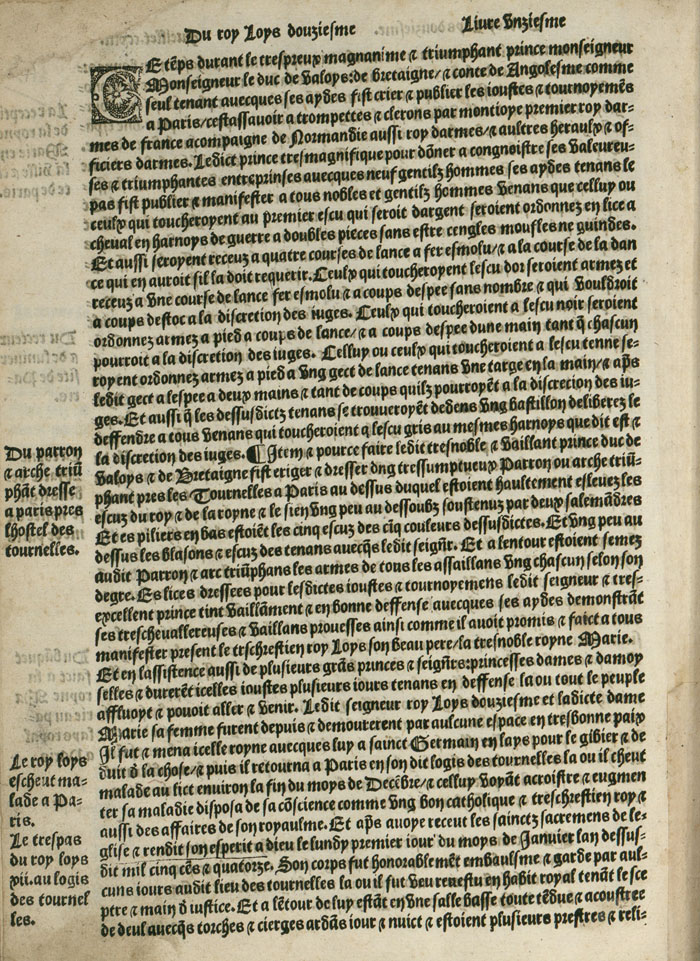 Du roy Loys douziesme
Liure Vnziesme
CE tẽps durant le trespreux magnanime & triumphant prince monseigneur
Monseigneur le duc de Valoys: de bretaigne/ & conte de Angolesme comme
seul tenant auecques ses aydes fist crier & publier les ioustes & tournoyemẽs
a Paris/ cestassauoir a trompettes & clerons par montioye premier roy dar-
mes de france acompaigne de Normandie aussi roy darmes/ & aultres heraulx & of-
ficiers darmes. Ledict prince tresmagnifique pour dõner a congnoistre ses Valeureu-
ses & triumphantes entreprinses auecques neuf gentilz hommes ses aydes tenans le
pas fist publier & manifester a tous nobles et gentilz hommes Venans que celluy ou
ceulx qui toucheroyent au premier escu qui seroit dargent seroient ordonnez en lice a
cheual en harnoys de guerre a doubles pieces sans estre cengles moufles ne guindes.
Et aussi seroyent receuz a quatre courses de lance a fer esmolu/ & a la course de la dan
ce qui en auroit sil la doit requerir. Ceulx qui toucheroyent lescu dor seroient armez et
receuz a Vne course de lance fer esmolu & a coups despee sans nombre & qui Vouldroit
a coups destoc a la discretion des iuges. Ceulx qui toucheroient a lescu noir seroient
ordonnez armez a pied a coups de lance/ & a coups despee dune main tant q̃ chascun
pourroit a la discretion des iuges. Celluy ou ceulx qui toucheroient a lescu tenne se-
royent ordonnez armez a pied a Vng gect de lance tenans Vne targe en la main/ & ap̃s
ledit gect a lespee a deux mains & tant de coups quilz pourroyẽt a la discrecion des iu-
ges. Et aussi q̃ les dessusdictz tenans se trouueroyẽt dedens Vng bastillon deliberez le
deffendre a tous Venans qui toucheroient a lescu gris au mesmes harnoys que dit est &
la discretion des iuges. ¶ Item & pource faire ledit tresnoble & Vaillant prince duc de
Valoys & de Bretaigne fist eriger & dresser Vng tressumptueux Parron ou arche triũ-
phant pres les Tournelles a Paris au dessus duquel estoient haultement esleuez les
escuz du roy & de la royne & le sien Vng peu au dessoubz soustenuz par deux salemãdres
Et es piliers en bas estoiẽt les cinq escuz des cĩq couleurs dessusdictes. Et Vng peu au
dessus les blasons & escuz des tenans auecq̃s ledit seigñr. Et a lentour estoient semez
audit Parron & arc triũphans les armes de tous les assaillans Vng chascun selon son
degre. Es lices dressees pour lesdictes ioustes & tournoyemens ledit seigneur & tres-
excellent prince tint Vaillãment & en bonne deffense auecques ses aydes demonstrãt
ses treschevallereuses & Vaillans prouesses ainsi comme il auoit promis & faict a tous
manifester present le trschrestien roy Loys son beau pere/ la tresnoble royne Marie.
Et en lassistence aussi de plusieurs grãs princes & seigñrs: princesses dames & damoy
selles & durerẽt icelles ioustes plusieurs iours tenans en deffense la ou tout le peuple
affluoyt & pouoit aller & Venir. Ledit seigneur roy Loys douziesme et ladicte dame
Marie sa femme furent depuis & demourerent par aulcune espace en tresbonne paix
Il fut & mena icelle royne auecques luy a sainct Germain en lays pour le gibier & de
duit d̃ la chose/ & puis il retourna a Paris en son dit logis des tournelles la ou il cheut
malade au lict enuiron la fin du moys de Decẽbre/ & celluy Voyãt acroistre & eugmen
ter sa maladie disposa de sa cõscience comme Vng bon catholique & treschrestien roy &
aussi des affaires de son royaulme. Et ap̃s auoye recent les sainctz sacremens de le-
glise & rendit son esperit a dieu le lundy premier iour du moys de Januier lan dessus-
dit mil cinq cẽs & quatorze. Son corps fut honorablemẽt embaulsme & garde par aul-
cuns iours audit lieu des tournelles la ou il fut Veu reuestu en habit royal tenãt le sce
ptre & main d̃ iustice. Et a lẽtour de luy estãt en Vne salle basse toute tẽdue & acoustree
de deul auecq̃s torches & cierges ardãs iour & nuict & estoient plusieurs prestres & reli-
Du parron
& arche triũ
phãt dresse
a paris pres
lhostel des
tournelles.
Le roy loys
escheut ma-
lade a Pa-
ris.
Le trespas
du roy loys
xii. au logis
des tournel
les.